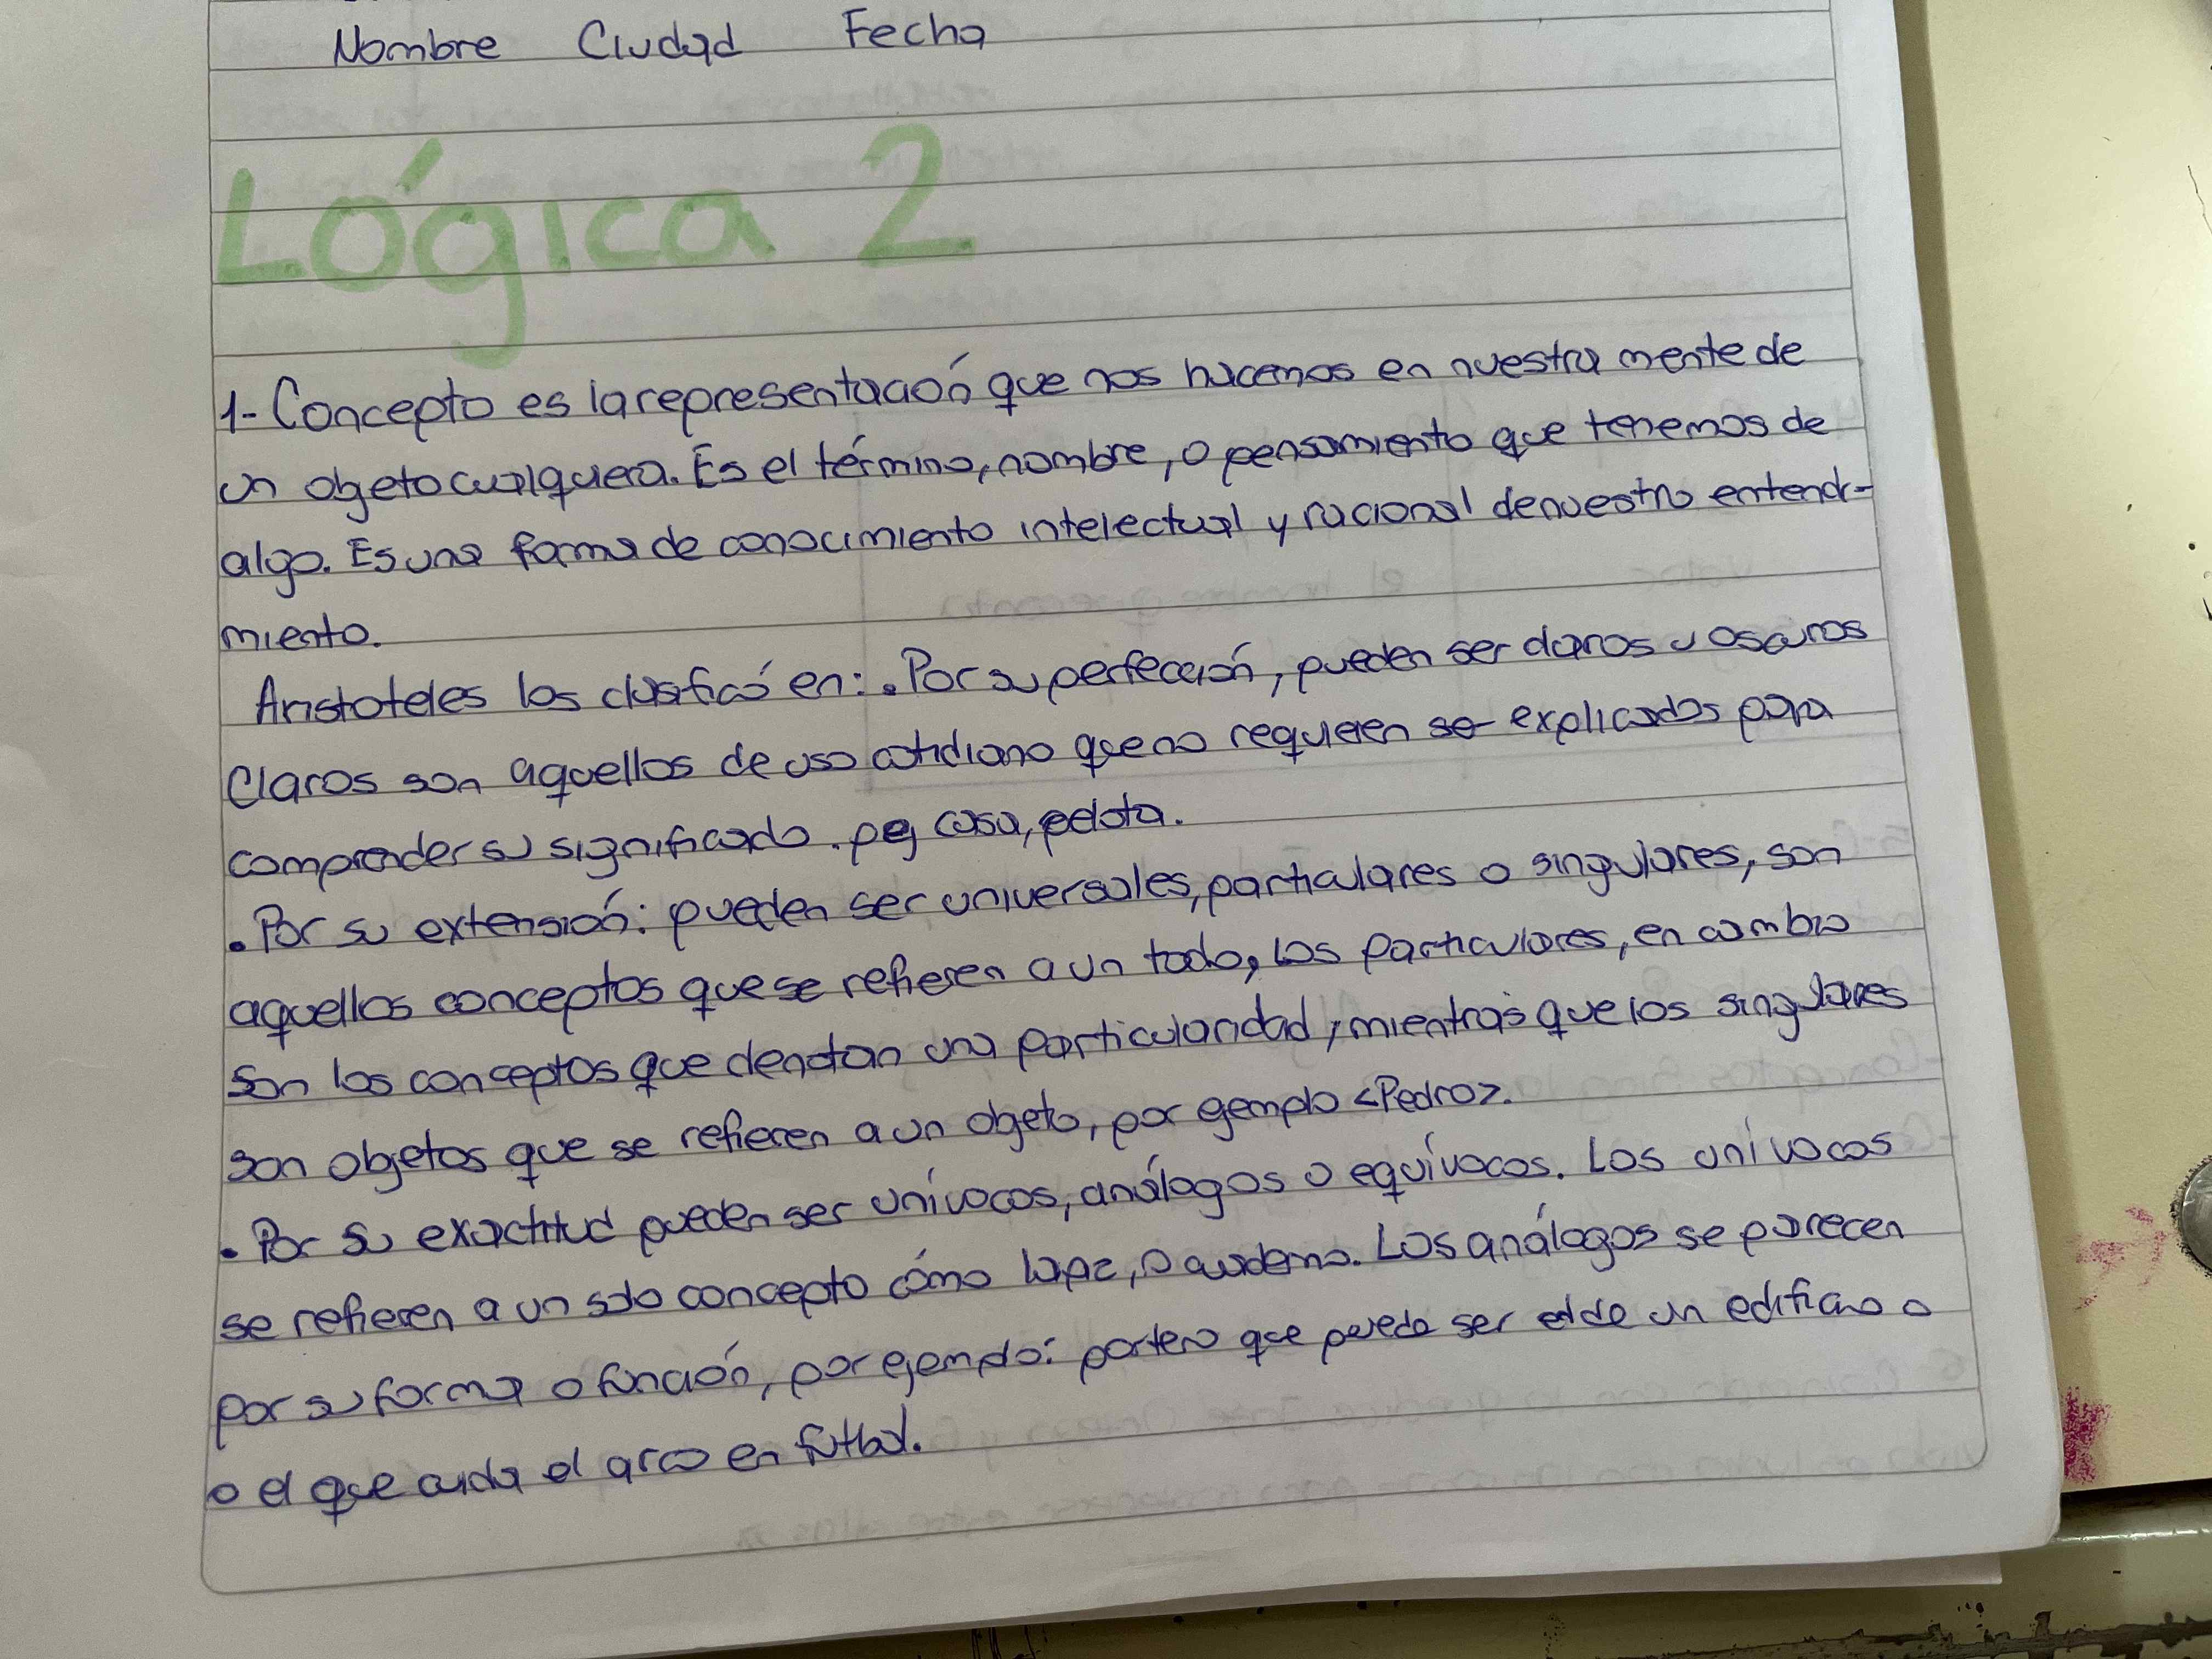 Nombre Ciudad Fecha
Lógica 2
1- Concepto es la representación que nos hacemos en nuestra mente de
un objeto cualquiera. Es el término, nombre, o pensamiento que tenemos de
algo. Es una forma de conocimiento intelectual y racional de nuestro entendi-
miento.
Aristoteles los clasificó en: • Por su perfección, pueden ser claros u oscuros
Claros son aquellos de uso cotidiano que no requieren ser explicados para
comprender su significado. pej casa, pelota.
• Por su extensión: pueden ser universales, particulares o singulares, son
aquellos conceptos que se refieren a un todo, los particulares, en cambio
son los conceptos que denotan una particularidad, mientras que los singulares
son objetos que se refieren a un objeto, por ejemplo <Pedro>.
• Por su exactitud pueden ser unívocos, análogos o equívocos. Los unívocos
se refieren a un solo concepto cómo lapiz, o cuaderno. Los análogos se parecen
por su forma o función, por ejemplo: portero que puede ser el de un edificio o
o el que cuida el arco en fútbol.